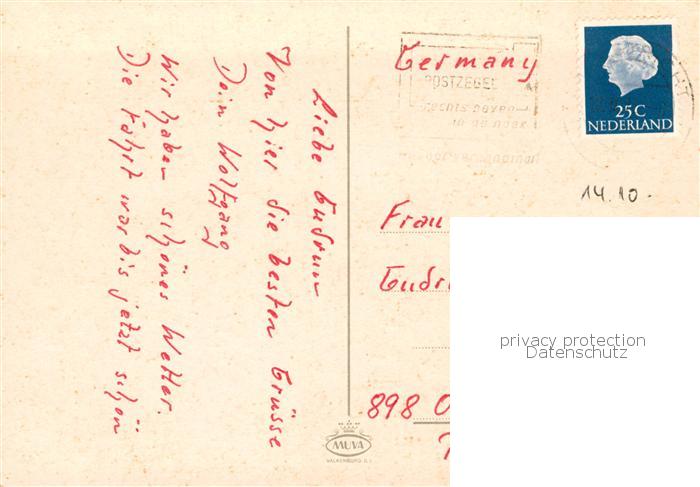 Liebe Gudrun
Von hier die besten Grüsse
Dein Wolfgang
Wir haben schönes Wetter.
Die Fahrt war bis jetzt schön
Germany
POSTZEGEL
RECHTS BOVEN
IN DE HOEK
25 C
NEDERLAND
14.10.
Frau
Gudr
898 O
privacy protection
Datenschutz
MUVA
VALKENBURG